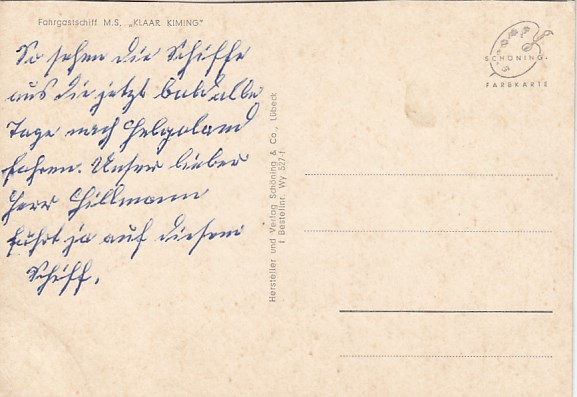 Fahrgastschiff M.S. „KLAAR KIMING"
So sehen die Schiffe
aus die jetzt bald alle
Tage nach Helgoland
fahren. Unser lieber
Herr Hillmann
fährt ja auf diesem
Schiff.
Hersteller und Verlag Schöning & Co., Lübeck
Bestellnr. Wy 527-f
SCHÖNING
FARBKARTE